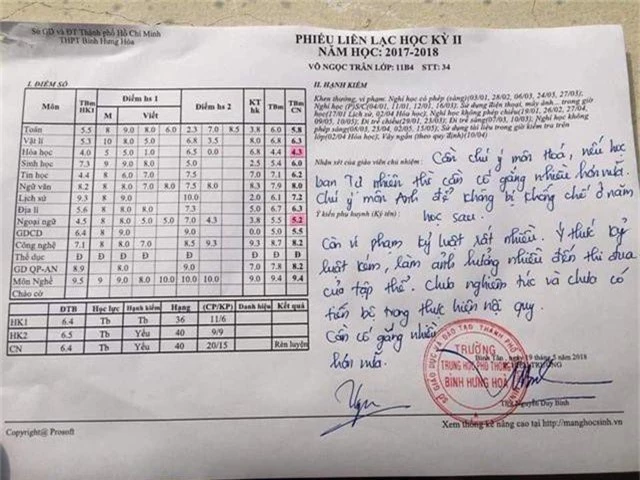 Sở GD và ĐT Thành phố Hồ Chí Minh
THPT Bình Hưng Hòa
PHIẾU LIÊN LẠC HỌC KỲ II
NĂM HỌC: 2017-2018
VÕ NGỌC TRÂN LỚP: 11B4 STT: 34
I. ĐIỂM SỐ
Môn TBm HK1 Điểm hs 1 Điểm hs 2 KT hk TBm TBm CN
M Viết
Toán 5.5 8 9.0 8.0 6.0 2.3 7.0 8.5 3.8 6.0 5.8
Vật lí 5.3 10 8.0 5.0 6.8 3.5 8.0 6.8 6.3
Hóa học 4.0 5 5.0 1.0 6.5 0.0 6.8 4.4 4.3
Sinh học 7.3 9 9.0 8.0 2.5 5.4 6.0
Tin học 4.4 8 6.0 7.1 6.2
Ngữ văn 8.2 8 8.0 7.0 8.0 7.5 8.0 8.3 7.9 8.0
Lịch sử 9.3 8 10.0 2.0 6.1 7.2
Địa lí 5.6 8 8.0 8.0 7.3 5.0 6.7 6.3
Ngoại ngữ 4.5 8 5.0 5.0 7.0 4.3 3.8 5.5 5.2
GDCD 6.4 9.0 0.0 5.0 5.5
Công nghệ 7.1 8 8.0 7.0 8.5 9.3 9.3 8.7 8.2
Thể dục Đ Đ Đ Đ Đ Đ
GD QP-AN 8.9 8.0 9.0 7.0 7.8 8.2
Môn Nghề 9.5 9 9.0 8.0 10.0 10.0 10.0 9.0 9.4 9.4
Chào cờ
ĐTB Học lực Hạnh kiểm Hạng (CP/KP) Danh hiệu Kết quả
HK1 6.4 Tb Tb 36 11/6
HK2 6.5 Tb Yếu 40 9/9
CN 6.4 Tb Yếu 40 20/15 Rèn luyện
II. HẠNH KIỂM
Khen thưởng, vi phạm: Nghỉ học có phép (sáng)(03/01, 28/02, 06/03, 24/03, 27/03);
Nghỉ học (P)S/C(04/01, 11/01, 12/01, 16/03); Sử dụng điện thoại, máy ảnh... trong giờ
học(17/01 Lịch sử, 02/04 Hóa học); Nghỉ học không phép chiều(19/01, 26/02, 27/04,
09/05, 10/05); Đi trễ chiều(29/01, 23/03); Đi trễ sáng(07/03, 10/03); Nghỉ học không
phép sáng(08/03, 23/04, 02/05, 15/05); Sử dụng tài liệu trong giờ kiểm tra trên
lớp(02/04 Hóa học); Vây ngắn (theo quy định)(10/04)
Nhận xét của giáo viên chủ nhiệm: Cần chú ý môn Hoá, nếu học
ban Tự nhiên thì cần cố gắng nhiều hơn nữa.
Chú ý môn Anh để không bị khống chế ở năm
học sau.
Ý kiến phụ huynh (Ký tên):
Còn vi phạm kỷ luật rất nhiều. Ý thức kỷ
luật kém, làm ảnh hưởng nhiều đến thi đua
của tập thể. Chưa nghiêm túc và chưa có
tiến bộ trong thực hiện nội quy.
Cần cố gắng nhiều
hơn nữa.
Bình Tân, ngày 19 tháng 5 năm 2018
SỞ GIÁO DỤC VÀ ĐÀO TẠO THÀNH PHỐ
TRƯỜNG
TRUNG HỌC PHỔ THÔNG
BÌNH HƯNG HOÀ
Nguyễn Duy Bình
Copyright@ Prosoft
Xem thông kê nâng cao tại http://manghocsinh.vn